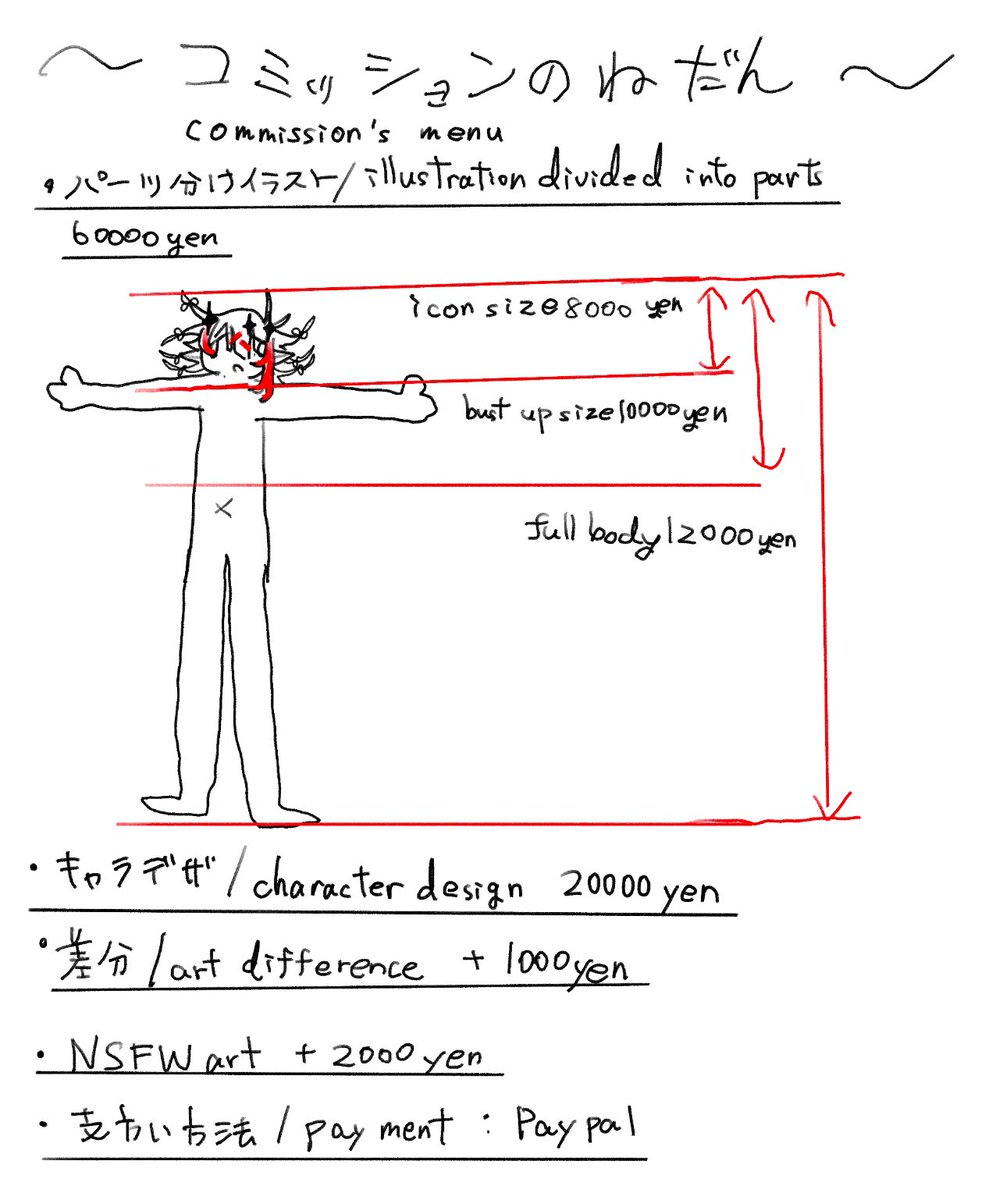 ～コミッションのねだん～
commission's menu
・パーツ分けイラスト/illustration divided into parts
60000yen
icon size8000 yen
bust up size10000yen
full body12000yen
・キャラデザ/character design 20000yen
・差分/art difference +1000yen
・NSFW art +2000yen
・支払い方法/payment:Paypal